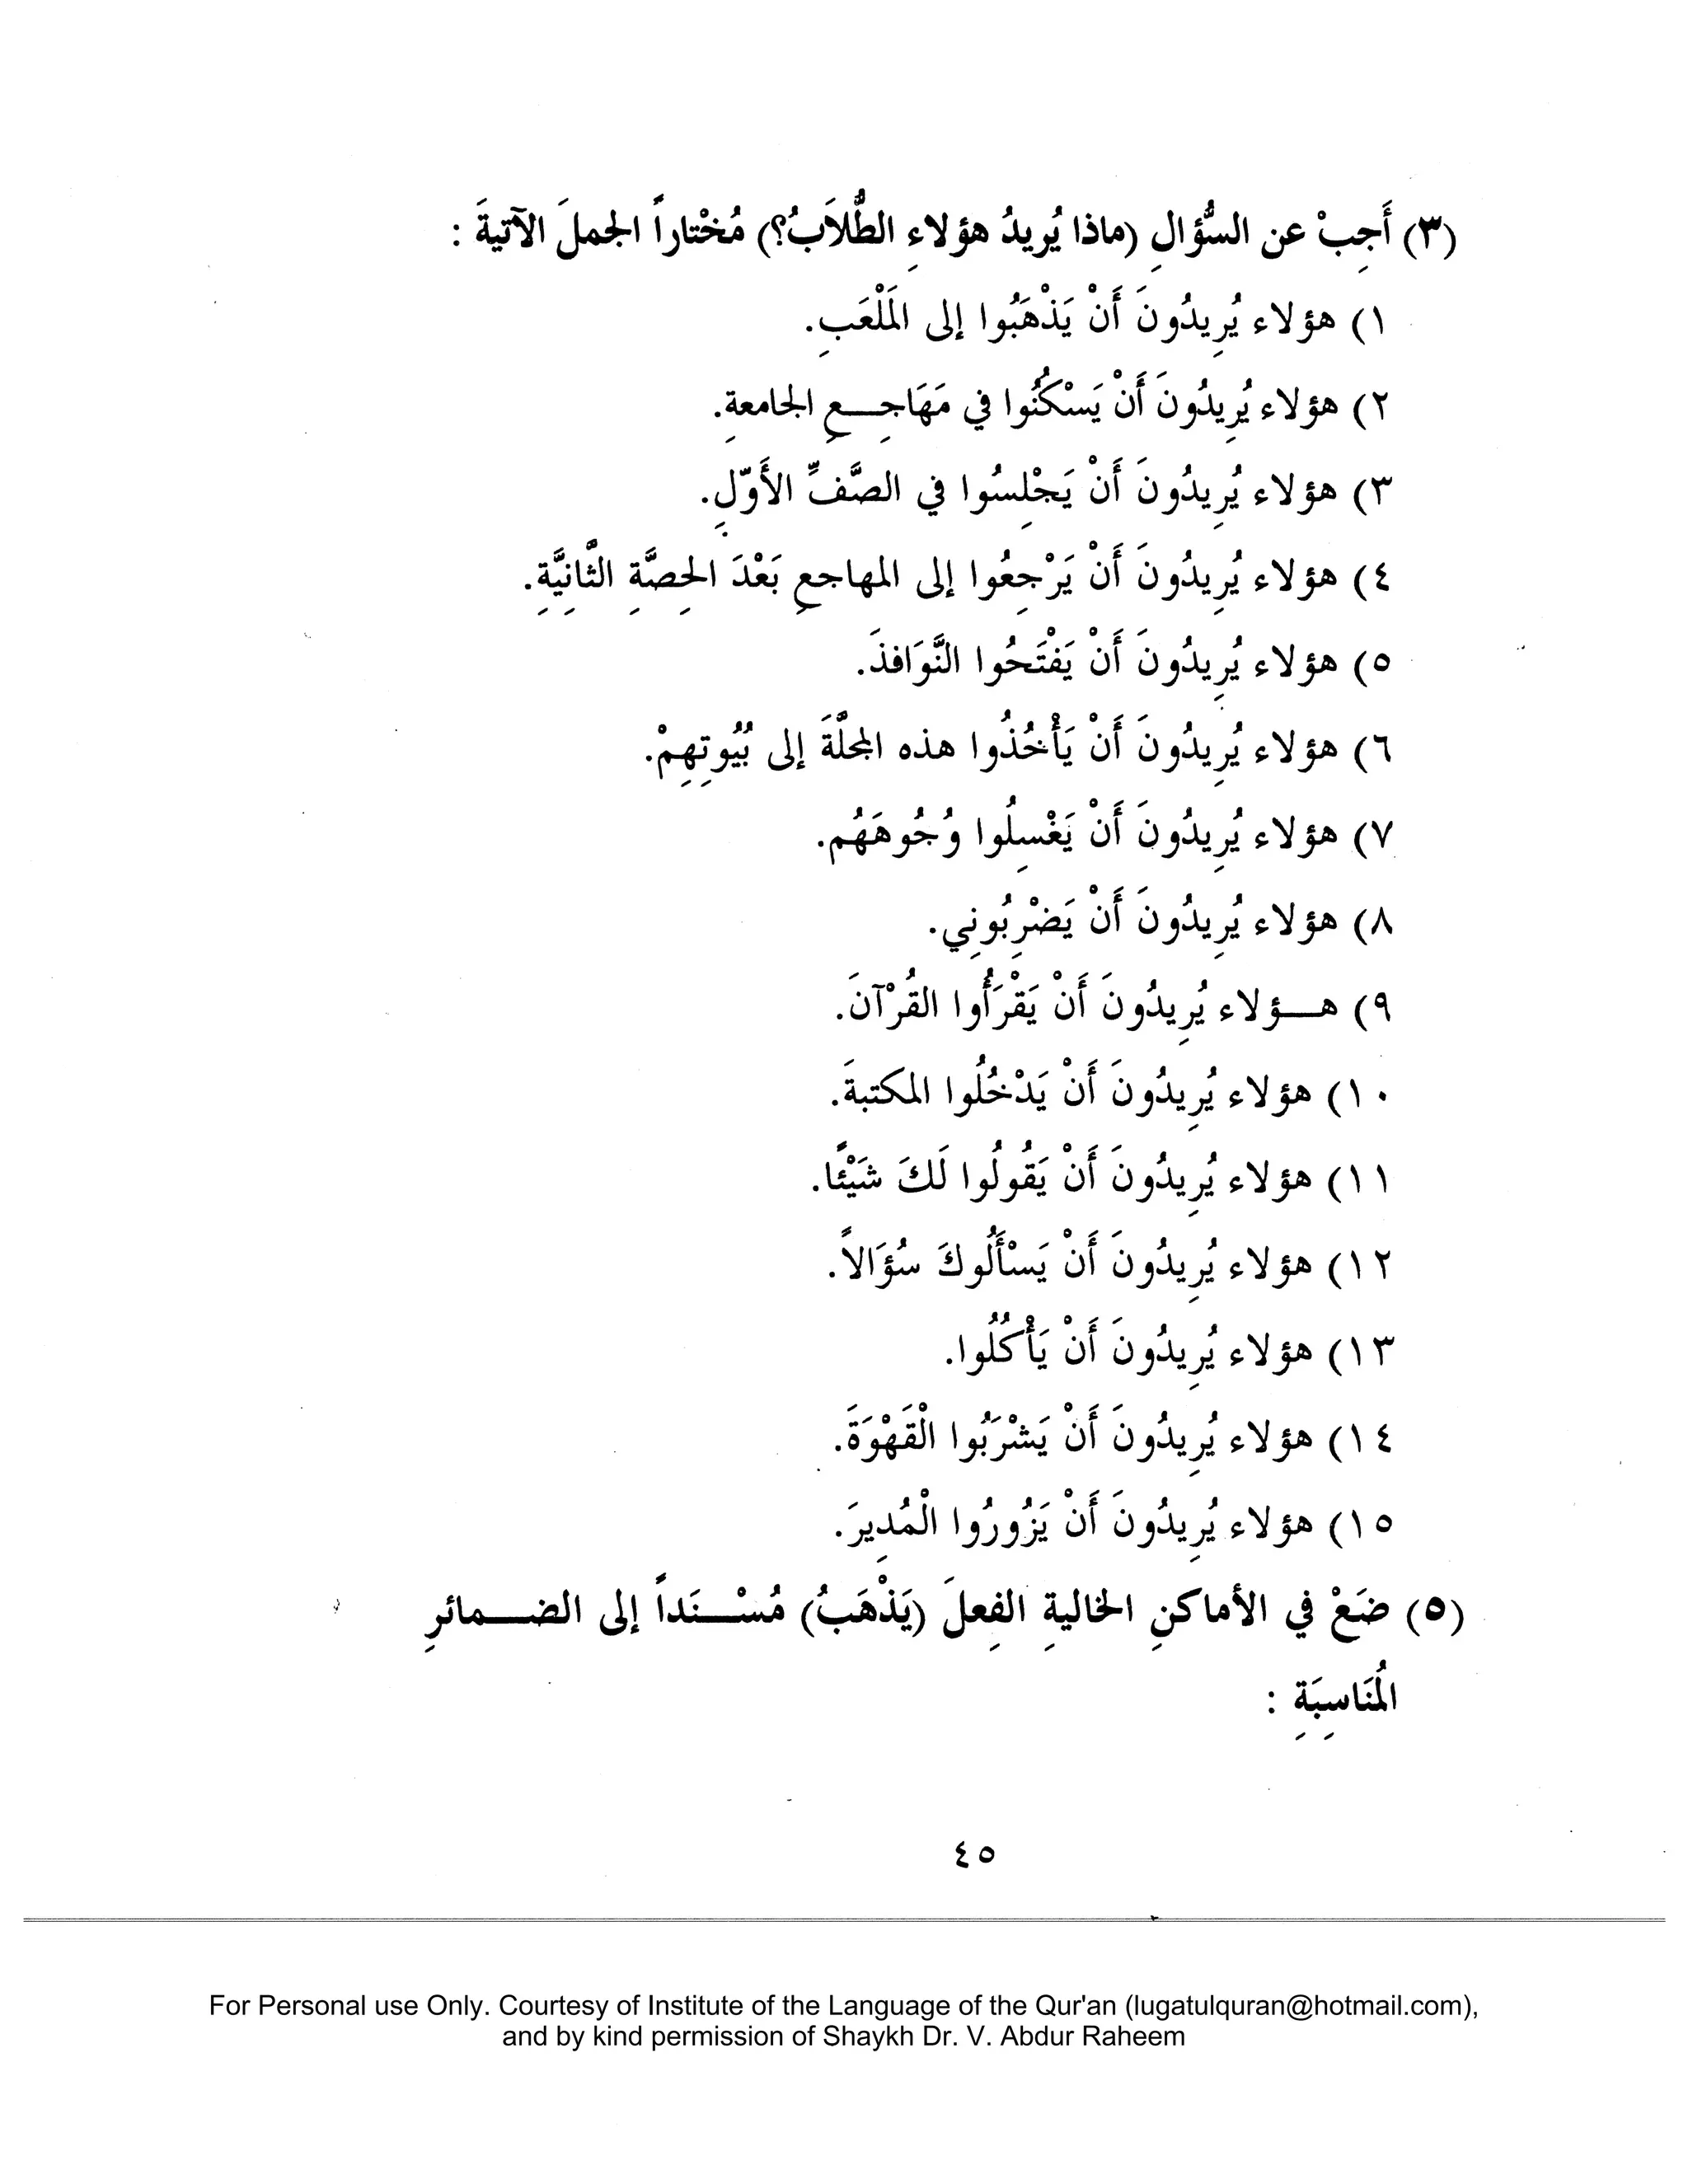 (٣) أَجِبْ عن السُّؤالِ (ماذا يُريدُ هؤلاءِ الطُّلاَّبُ؟) مُخْتاراً الجملَ الآتيةَ :
١) هؤلاء يُرِيدُونَ أَنْ يَذْهَبُوا إلى المَلْعَبِ.
٢) هؤلاء يُرِيدُونَ أَنْ يَسْكُنُوا في مَهَاجِـــعِ الجامعةِ.
٣) هؤلاء يُرِيدُونَ أَنْ يَجْلِسُوا في الصَّفِّ الأَوّلِ.
٤) هؤلاء يُرِيدُونَ أَنْ يَرْجِعُوا إلى المهاجعِ بَعْدَ الحِصَّةِ الثَّانِيَّةِ.
٥) هؤلاء يُرِيدُونَ أَنْ يَفْتَحُوا النَّوَافذَ.
٦) هؤلاء يُرِيدُونَ أَنْ يَأْخُذُوا هذه المجلَّةَ إلى بُيُوتِهِمْ.
٧) هؤلاء يُرِيدُونَ أَنْ يَغْسِلُوا وُجُوهَهُم.
٨) هؤلاء يُرِيدُونَ أَنْ يَضْرِبُونِي.
٩) هـــؤلاء يُرِيدُونَ أَنْ يَقْرَأُوا القُرْآنَ.
١٠) هؤلاء يُرِيدُونَ أَنْ يَدْخُلُوا المكتبةَ.
١١) هؤلاء يُرِيدُونَ أَنْ يَقُولُوا لَكَ شَيْئًا.
١٢) هؤلاء يُرِيدُونَ أَنْ يَسْأَلُوكَ سُؤَالاً.
١٣) هؤلاء يُرِيدُونَ أَنْ يَأْكُلُوا.
١٤) هؤلاء يُرِيدُونَ أَنْ يَشْرَبُوا الْقَهْوَةَ.
١٥) هؤلاء يُرِيدُونَ أَنْ يَزُورُوا الْمُدِيرَ.
(٥) ضَعْ في الأماكنِ الخاليةِ الفِعلَ (يَذْهَبُ) مُسْـــنَداً إلى الضـــمائرِ
المُنَاسِبَةِ :
٤٥
For Personal use Only. Courtesy of Institute of the Language of the Qur'an (lugatulquran@hotmail.com),
and by kind permission of Shaykh Dr. V. Abdur Raheem